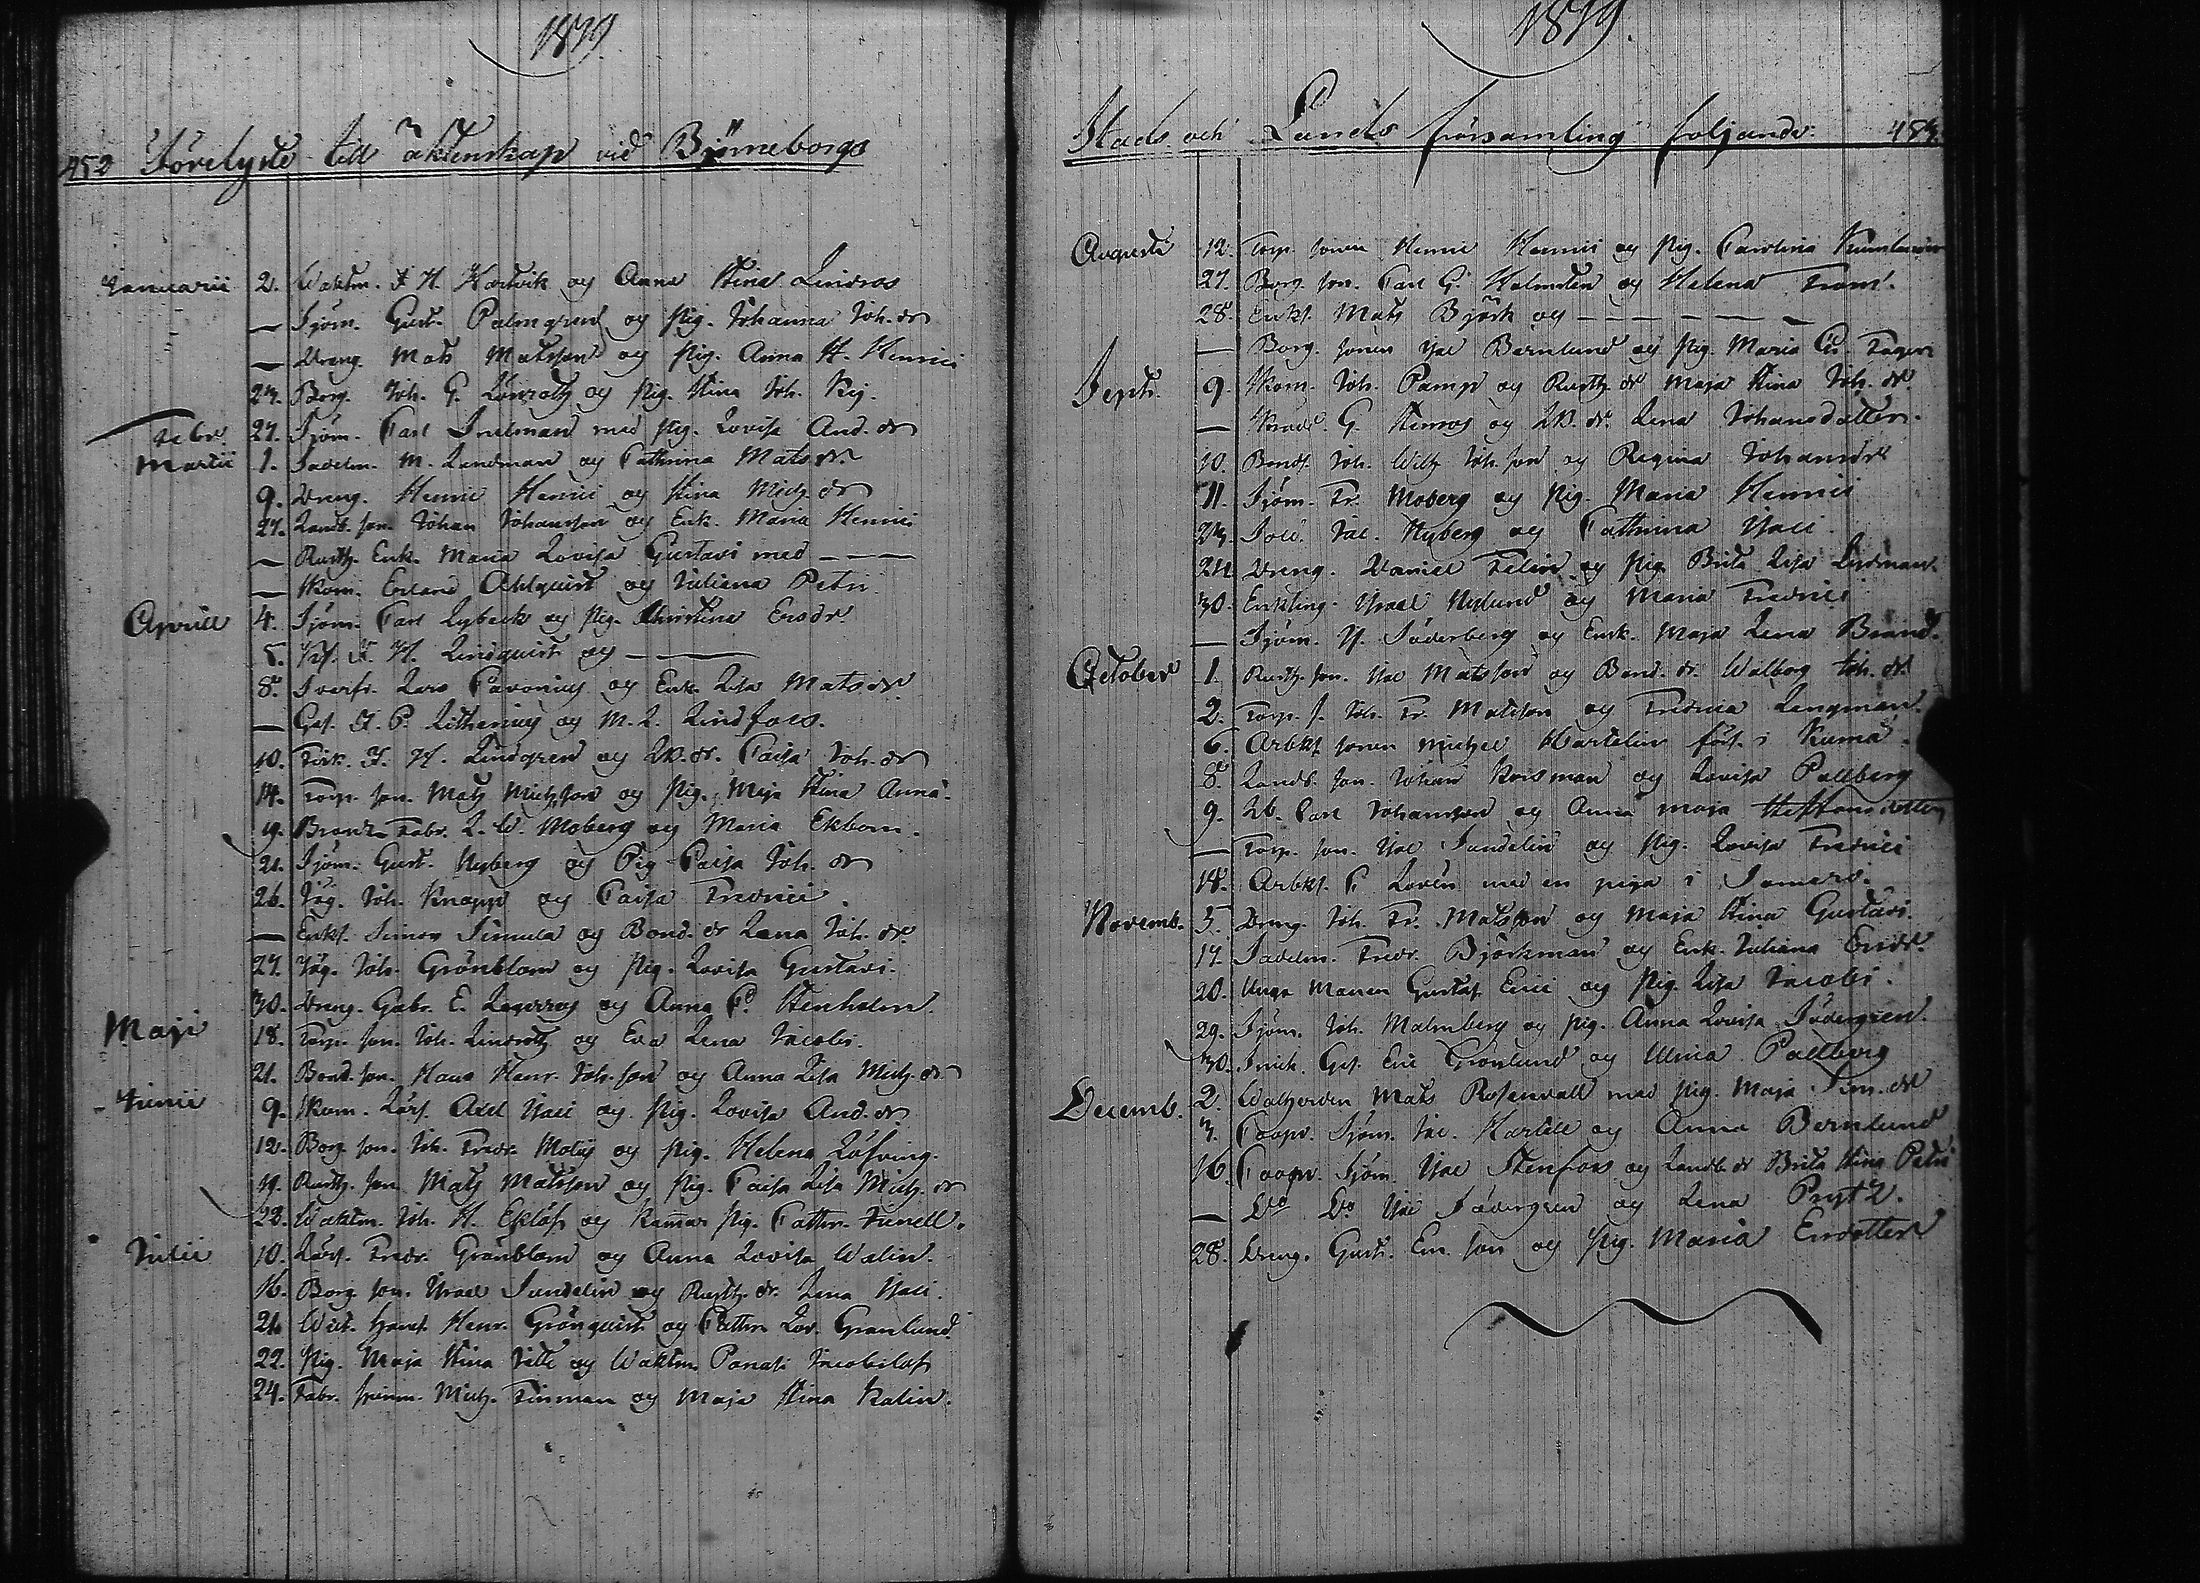 1819.
452 Förelyste till äktenskap vid Björneborgs
Januarii 2. Waktm. J. H. Hartvik og Anna Stina Lindros
— Sjöm. Gust. Palmgren og pig. Johanna Joh. dr
— Dreng. Mats Matsson og pig. Anna H. Henrici
23. Borg. Joh. G. Lönroth og pig. Stina Joh.
Febr. 27. Sjöm. Carl Snelman med pig. Lovisa And. dr
Martii 1. Sadelm. M. Lundman og Cathrina Matsdr.
9. Dreng. Henric Henrici og Stina Mich. dr
27. Landb. son. Johan Johansson og Enk. Maria Henrici
— Rusth. Enk. Maria Lovisa Gustavi med — — —
— Skom. Erland Ahlquist og Juliana Petri
Aprill 4. Sjöm. Carl Lybeck og pig. Christina Ersdr
5. J. H. Lindquist og — — —
8. Lars Pavonius og Enk. Lisa Matsdr
— Ges. J. P. Lithenius og M. L. Lindfors.
10. J. H. Lindgren og dr. Caisa Joh. dr
14. Torp. son. Mats Michson og pig. Maja Stina Anna.
19. Fabr. L. W. Moberg og Maria Ekbom.
21. Sjöm. Gust. Nyberg og Pig Caisa Joh. dr
26. Joh. Knapp og Caisa Fredrici.
— Enkl. Simon Simula og Bond. dr Lena Joh. dr.
27. Joh. Grönblom og pig. Lovisa Gustavi.
30. Dreng. Gabr. E. Lagerros og Anna C. Stenholm.
Maji 18. Torp. son. Joh. Lindroth og Eva Lena Jacobi.
21. Bond. son. Hans Henr. Joh. son og Anna Lisa Mich. dr
Junii 9. Skom. Lärl. Axel Isaci og pig. Lovisa And. dr
12. Borg. son. Joh. Fredr. Molin og pig. Helena Löfving.
19. Rusth. son. Mats Matsson og pig. Caisa Lisa Mich. dr
22. Waktm. Joh. H. Eklöf og Kammar pig. Cathr. Junell.
Julii 10. Lärl. Fredr. Grönblom og Anna Lovisa Walin.
16. Borg. son. Israel Sundelin og Rusth. dr. Lena Isaci.
21. Henr. Grönquist og Cathr. Lov. Granlund
22. Pig. Maja Stina og Waktm.
24. Fabr. Mich. Finman og Maja Stina Kalin.
1819.
Stads och Lands församling följande 453.
Augusti 12. Torp. sonen Henric Henrici og pig. Carolina
27. Borg. son. Carl G. Holmsten og Helena From.
28. Enkl. Mats Björk og — — — — —
— Borg. sonen Isac Bernlund og pig. Maria
Sept. 9. Skom. Joh. Pamp og Rusth. dr Maja Stina Joh. dr.
— G. Stenros og dr. Lena Johansdotter.
10. Bonds. Joh. Wilh. Joh. son og Regina Johansdr
11. Sjöm. Fr. Moberg og pig. Maria Henrici
23. Sold. Jac. Nyberg og Cathrina Isaci.
24 Dreng. Daniel Felin og pig. Brita Lisa Lindman.
30. Enkling. Israel Nylund og Maria Fredrici
— Sjöm. I. Söderberg og Enk. Maja Lena Brand.
October 1. Rusth. son. Isac Matsson og Bond. dr. Walborg Joh. dr.
2. Torp. s. Joh. Fr. Matsson og Fredrica Lengman.
6. Arbkl. sonen Michel Martelin förl. i Kumå.
8. Landb. son. Johan Krisman og Lovisa Pallberg
9. Lb. Carl Johansson og Anna Maja
— Torp. son. Isac Sundelin og pig. Lovisa Fredrici
14. Arbkl. C. Lovén med en piga i
Novemb. 5. Dreng. Joh. Fr. Matsson og Maja Stina Gustavi.
17. Sadelm. Fredr. Björkman og Enk. Juliana Ersdr.
20. Unga Mannen Gustaf Erici og Pig. Lisa Jacobi.
29. Sjöm. Joh. Malmberg og pig. Anna Lovisa Södergren
30. Ges. Eric Grönlund og Ulrica Pallberg
Decemb. 2. Mats Rosendall med pig. Maja Sim. dr
3. Coopv. Sjöm. Jac. Hartell og Anna Bernlund
16. Coopv. Sjöm. Isac Stenfors og Landb. dr Brita Stina Petri
— Do Do Isac Södergren og Lena Prytz.
28. Dreng. Gust. Er. son og pig. Maria Ersdotter